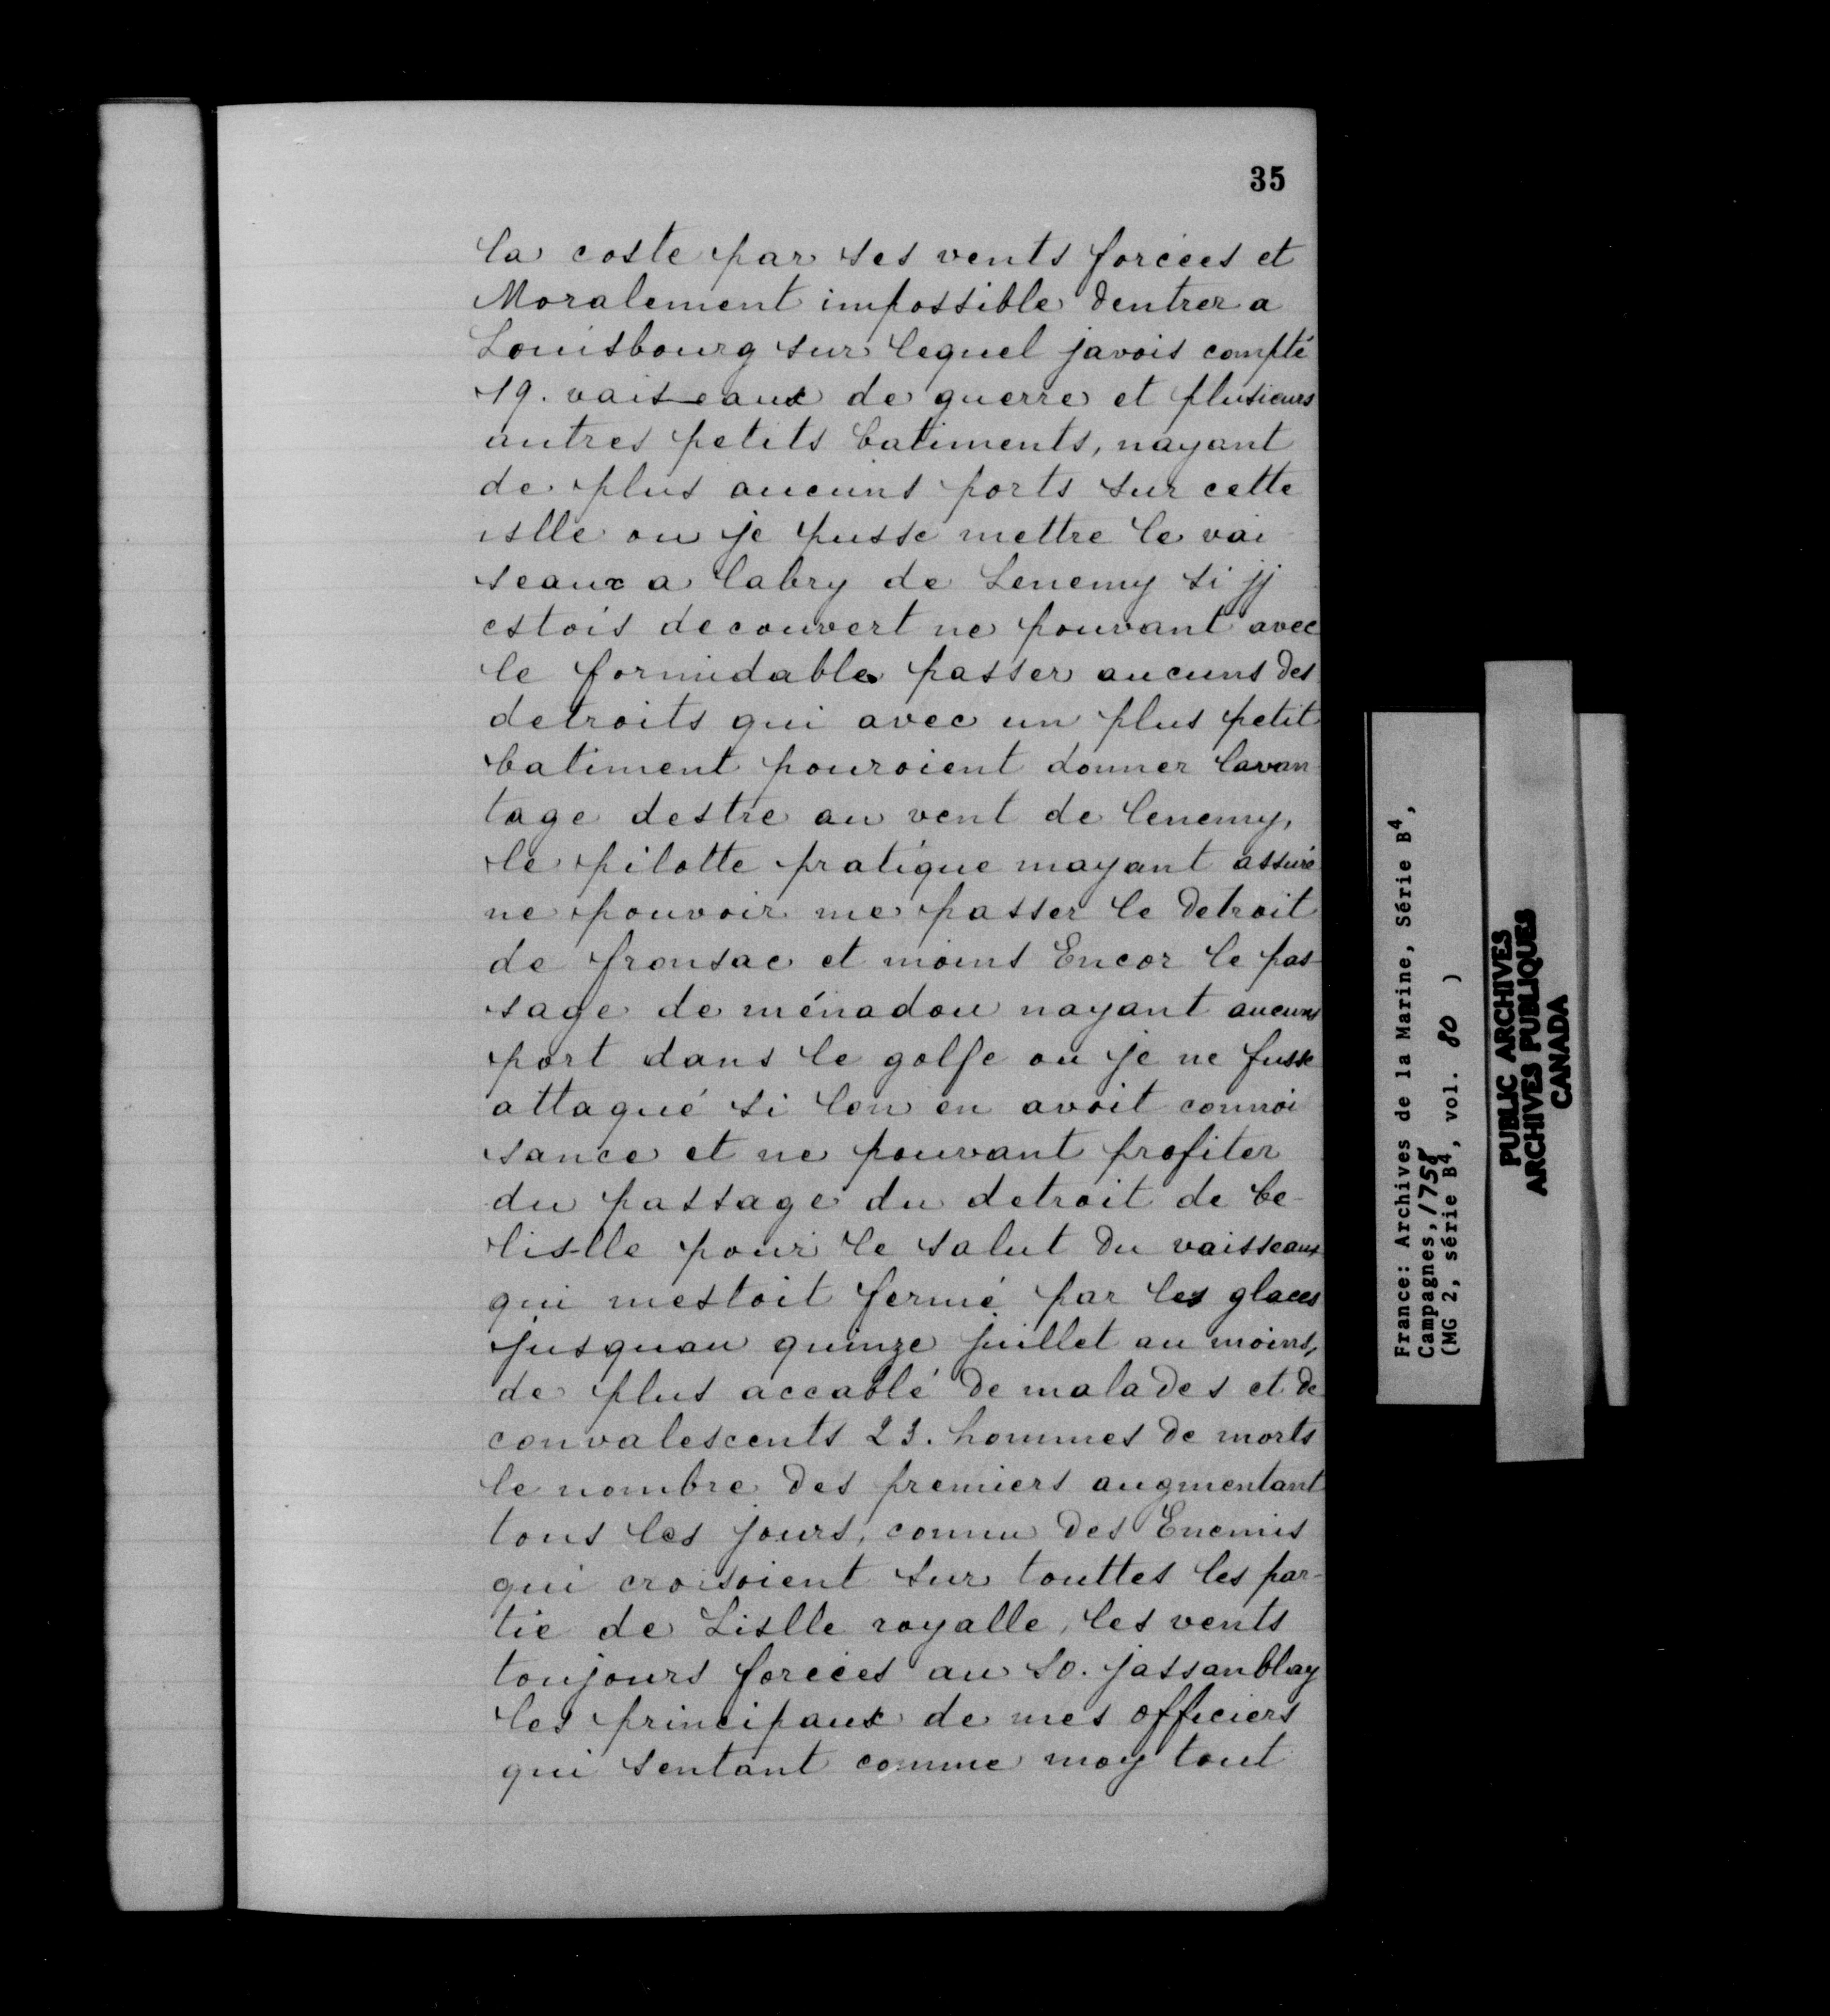 35
la coste par ses vents forcées et
Moralement impossible dentrer a
Louisbourg sur lequel javois compté
19. vaiseaux de guerre et plusieurs
autres petits batiments, nayant
de plus aucuns ports sur cette
islle ou je pusse mettre le vai
seaux a labry de Lenemy si jj
estois decouvert ne pouvant avec
le formidable passer aucuns des
detroits qui avec un plus petit
batiment pouroient donner lavan
tage destre au vent de lenemy,
le pilotte pratique mayant assuré
ne pouvoir me passer le detroit
de fronsac et moins Encor le pas-
sage de ménadou nayant aucuns
port dans le golfe ou je ne fusse
attaqué si lon en avoit connoi
sance et ne pouvant profiter
du passage du detroit de be-
lislle pour le salut du vaisseaux
qui mestoit fermé par les glaces
jusquau quinze juillet au moins,
de plus accablé de malades et de
convalescents 23. hommes de morts
le nombre des premiers augmentant
tous les jours, connu des Enemis
qui croisoient sur touttes les par-
tie de Lislle royalle, les vents
toujours forcées au so. jassanblay
les principaux de mes officiers
qui sentant comme moy tout
France: Archives de la Marine, Série B4,
Campagnes, 1758
(MG 2, série B4, vol. 80 )
PUBLIC ARCHIVES
ARCHIVES PUBLIQUES
CANADA